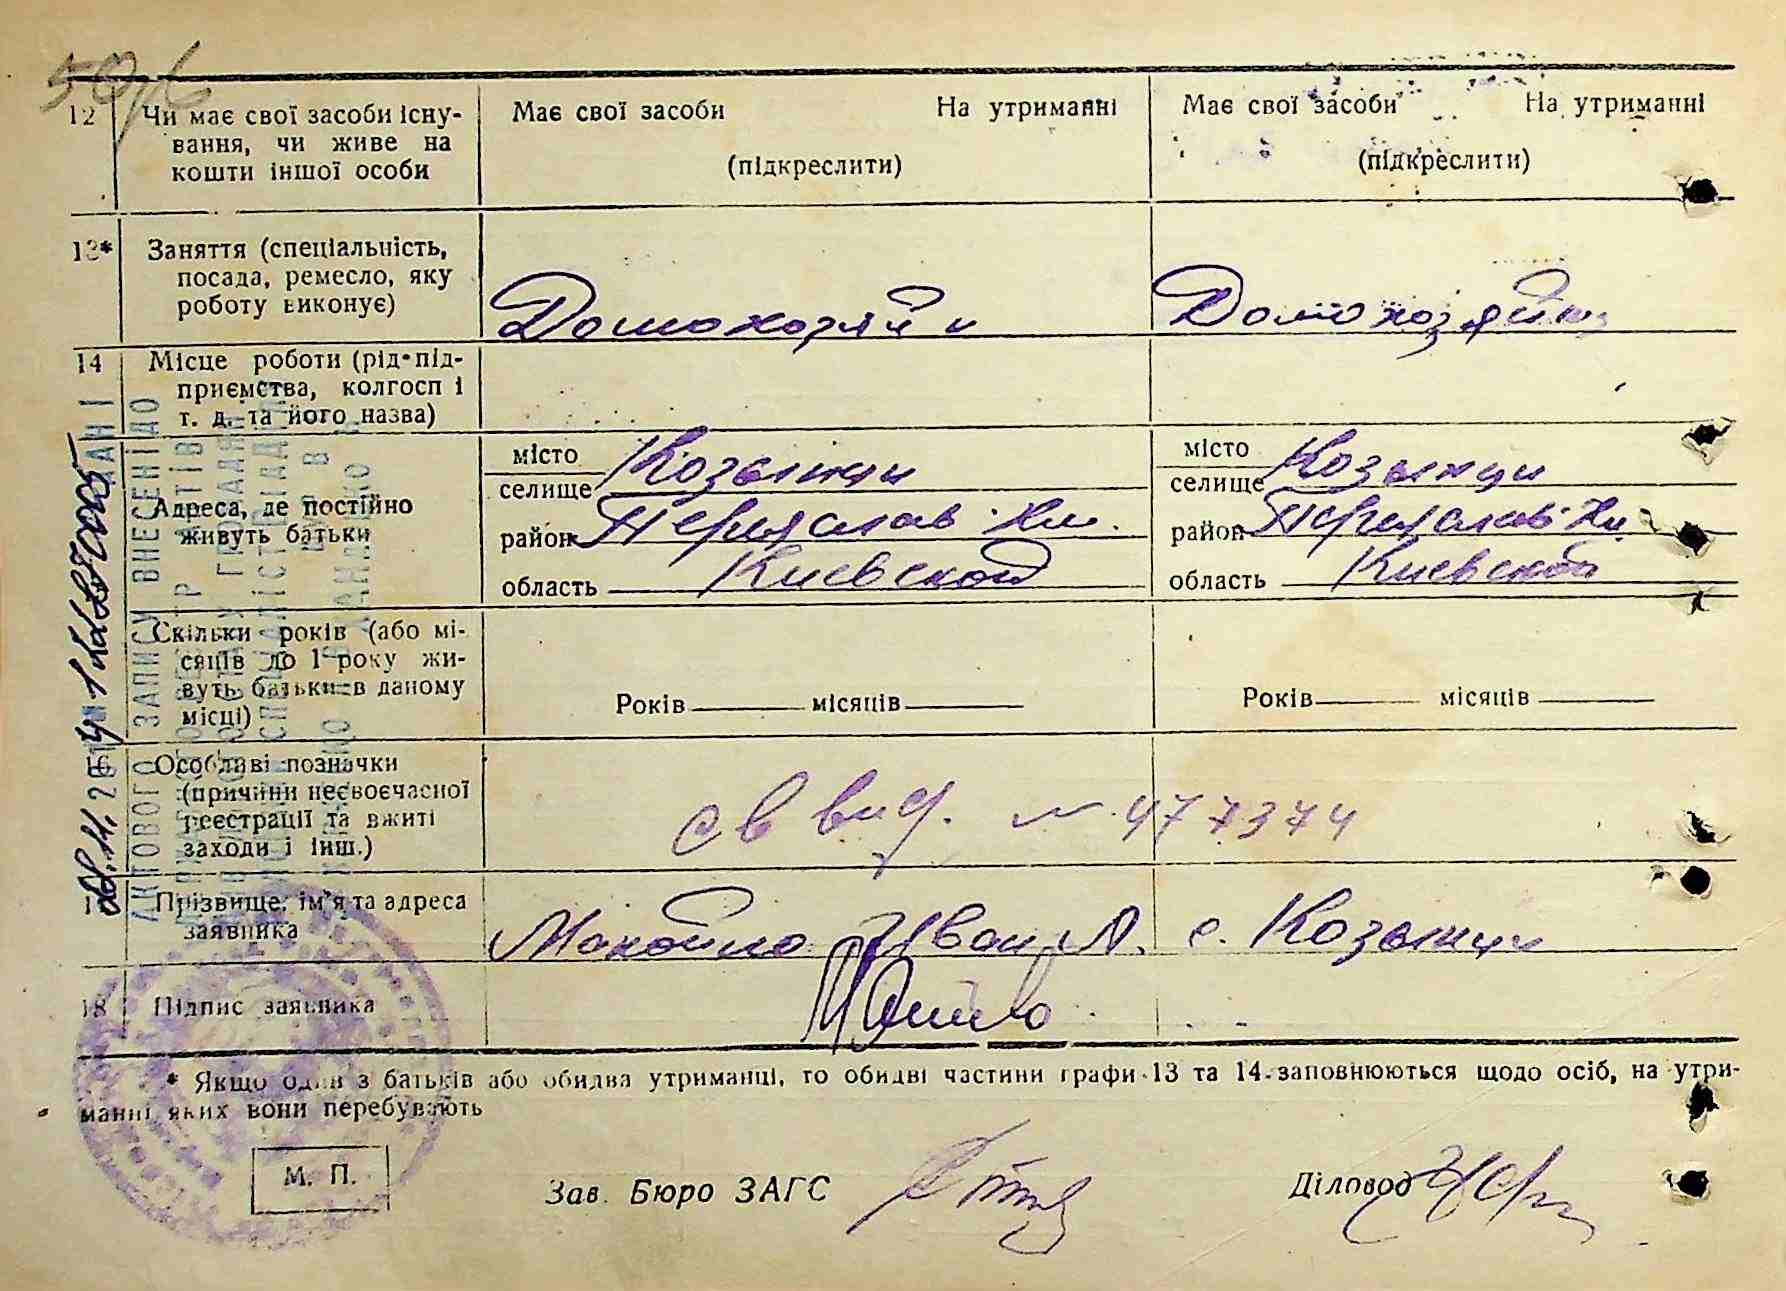 12 Чи має свої засоби існу-
вання, чи живе на
кошти іншої особи
Має свої засоби На утриманні
(підкреслити)
Має свої засоби На утриманні
(підкреслити)
13* Заняття (спеціальність,
посада, ремесло, яку
роботу виконує)
Домохозяйн
Домохозяйн
14 Місце роботи (рід під-
приємства, колгосп і
т. д. та його назва)
Адреса, де постійно
живуть батьки
місто
селище Козынци
район Переяслав-Хм.
область Киевской
місто
селище Козынци
район Переяслав-Хм.
область Киевской
Скільки років (або мі-
сяців до 1 року жи-
вуть батьки в даному
місці)
Років місяців
Років місяців
16 Особливі позначки
(причини несвоєчасної
реєстрації та вжиті
заходи і інш.)
св вид. № 477374
Прізвище, ім'я та адреса
заявника
Иван А. с. Козынци
18 Підпис заявника
* Якщо один з батьків або обидва утриманці, то обидві частини графи 13 та 14 заповнюються щодо осіб, на утри-
манні яких вони перебувають
М. П.
Зав. Бюро ЗАГС
Діловод